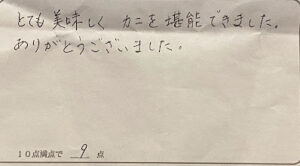 とても美味しく カニを堪能できました。
ありがとうございました。
10点満点で 9 点